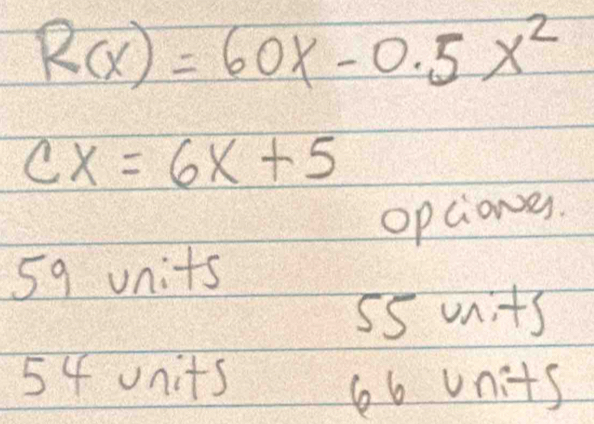 R(x) = 60x - 0.5x²
Cx = 6x + 5
opciones.
59 units
55 units
54 units
66 units